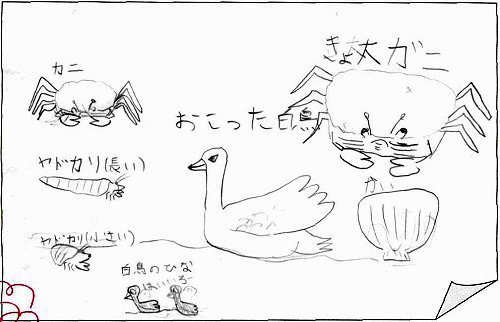 カニ
きょ大ガニ
おこった白鳥
ヤドカリ(長い)
かい
ヤドカリ(小さい)
白鳥のひな
はいいろ